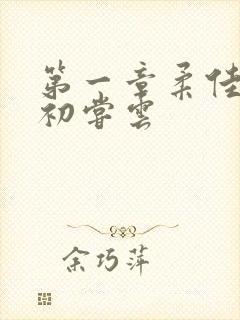 第一章柔佳
初尝云
余巧萍